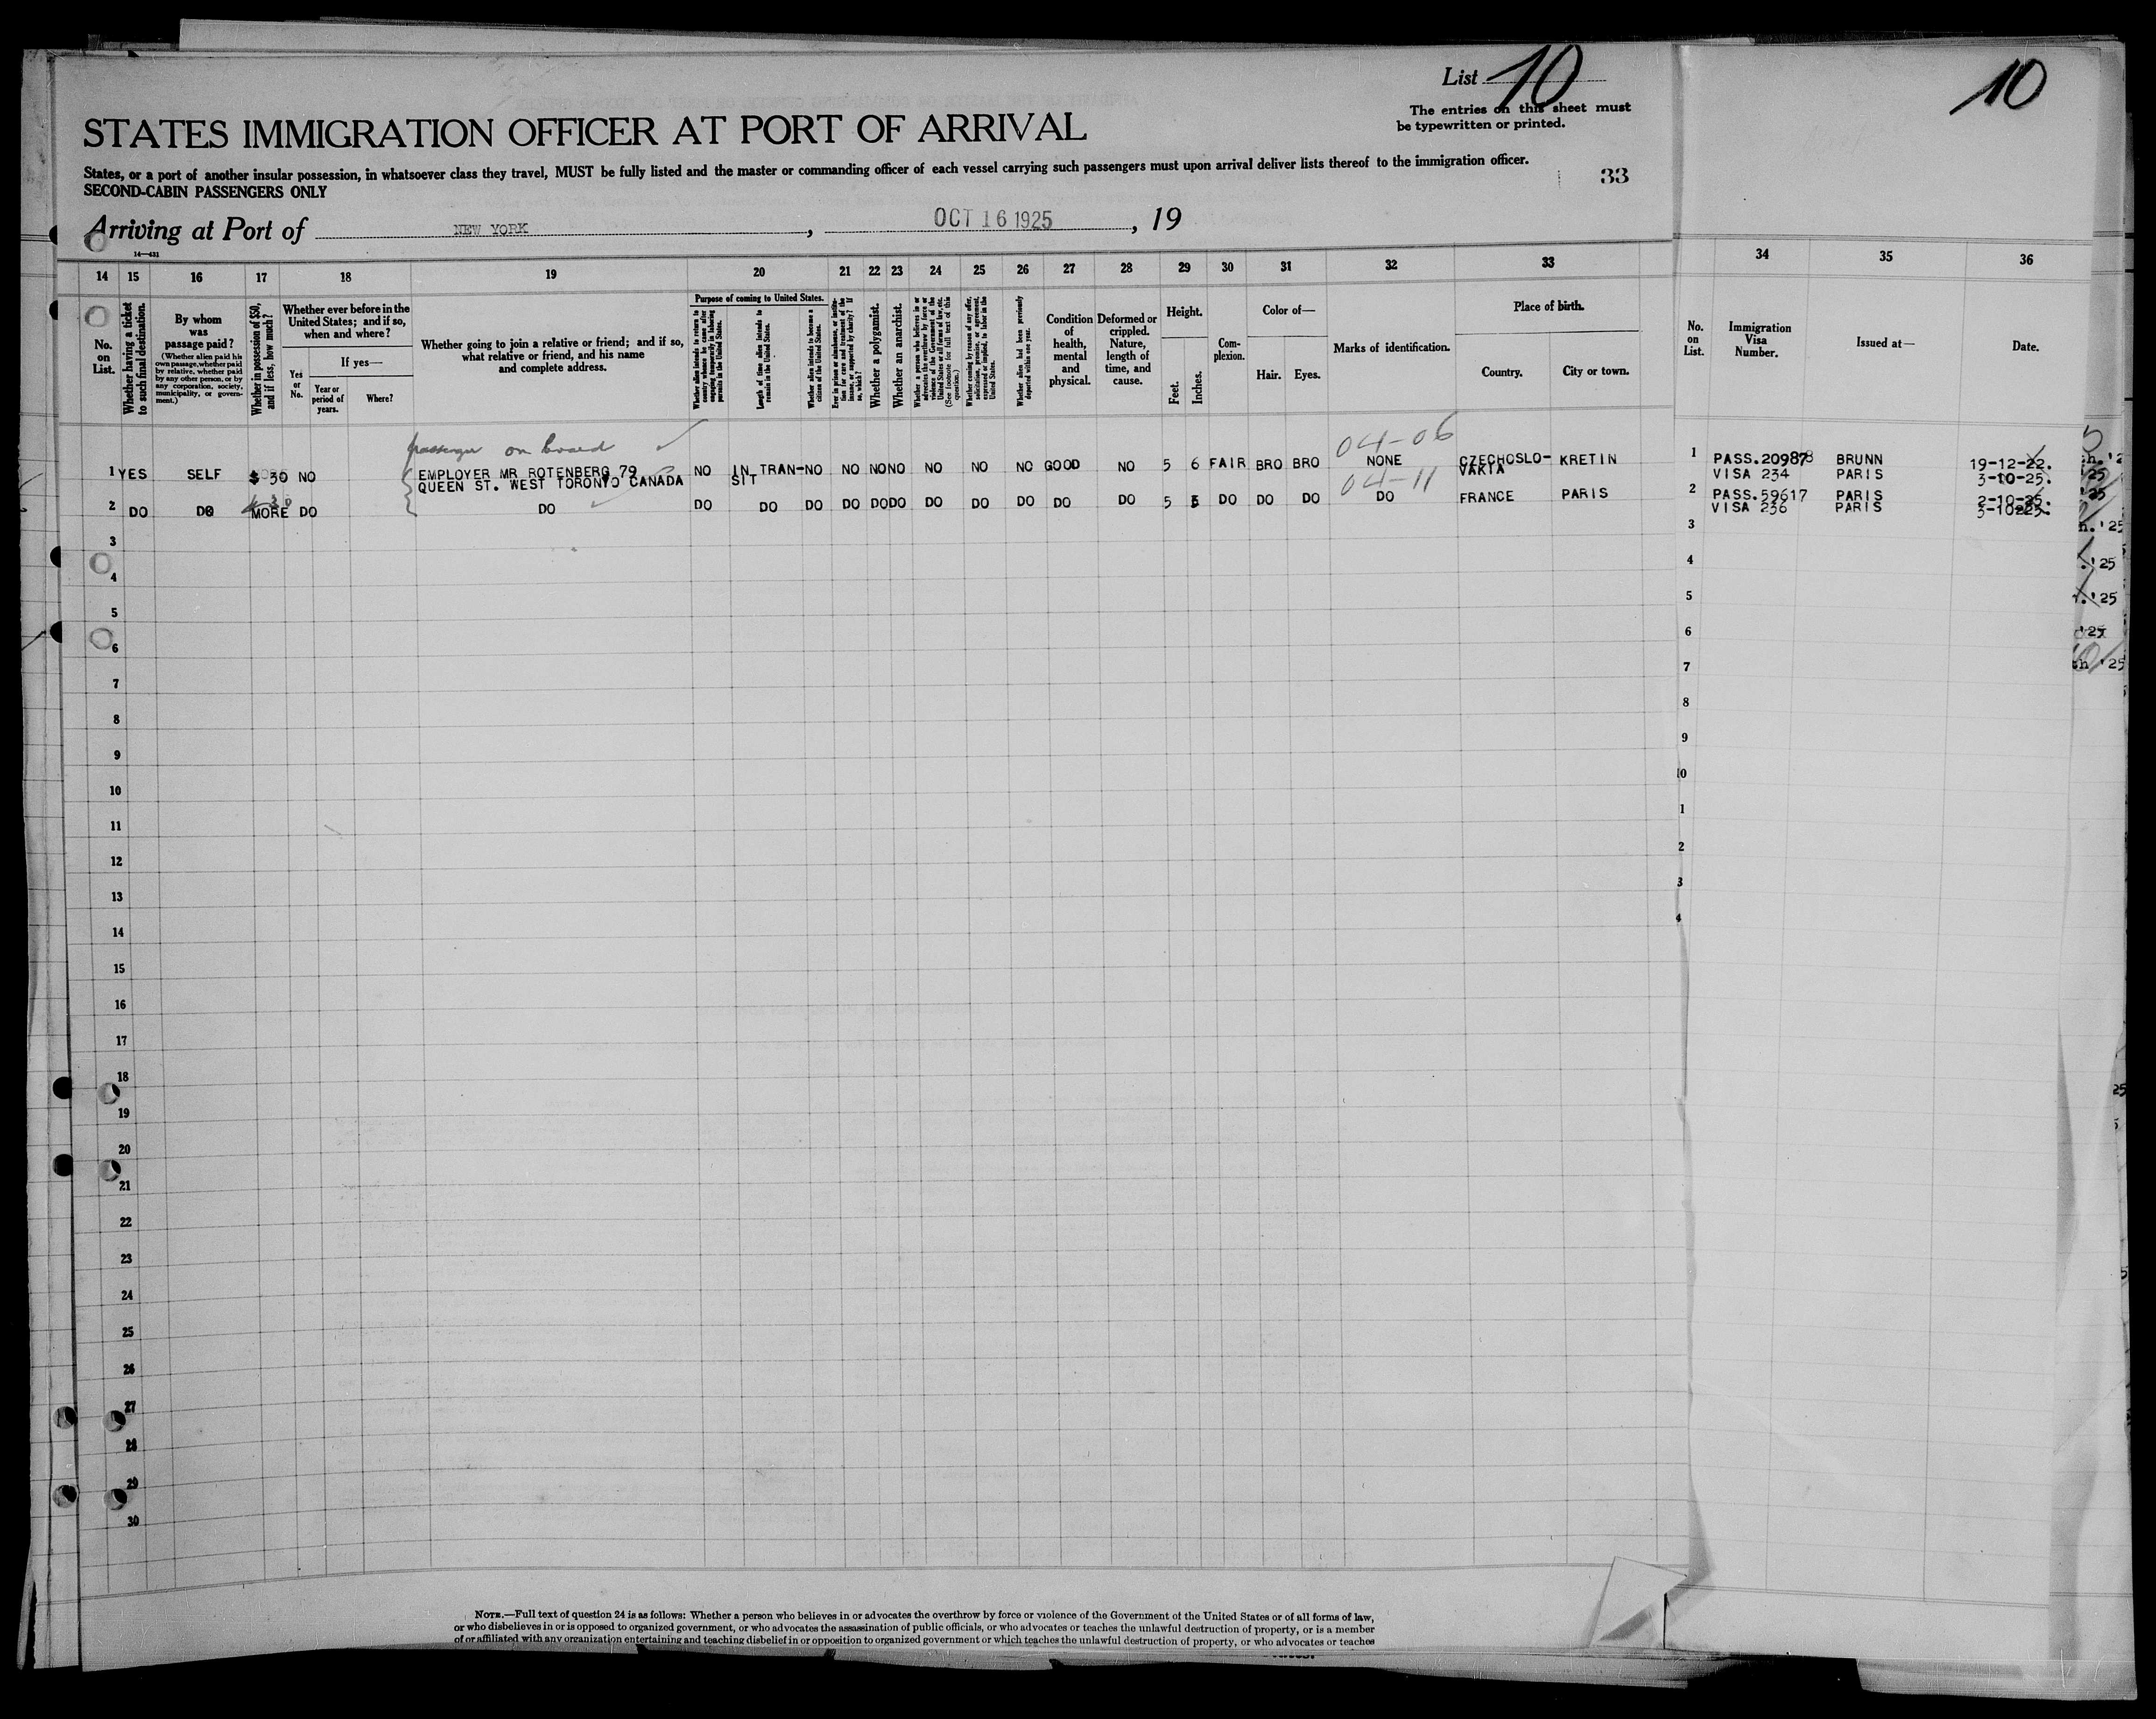 List 10
10
The entries on this sheet must
be typewritten or printed.
STATES IMMIGRATION OFFICER AT PORT OF ARRIVAL
States, or a port of another insular possession, in whatsoever class they travel, MUST be fully listed and the master or commanding officer of each vessel carrying such passengers must upon arrival deliver lists thereof to the immigration officer.
SECOND-CABIN PASSENGERS ONLY
33
Arriving at Port of NEW YORK, OCT 16 1925, 19
14—431
14 15 16 17 18 19 20 21 22 23 24 25 26 27 28 29 30 31 32 33 34 35 36
No. on List.
Whether having a ticket to such final destination.
By whom was passage paid?
(Whether alien paid his own passage, whether paid by relative, whether paid by any other person, or by any corporation, society, municipality, or government.)
Whether in possession of $50, and if less, how much?
Whether ever before in the United States; and if so, when and where?
Yes or No.
If yes—
Year or period of years.
Where?
Whether going to join a relative or friend; and if so, what relative or friend, and his name and complete address.
Purpose of coming to United States.
Whether alien intends to return to country whence he came after engaging temporarily in laboring pursuits in the United States.
Length of time alien intends to remain in the United States.
Whether alien intends to become a citizen of the United States.
Ever in prison or almshouse, or institution for care and treatment of the insane, or supported by charity? If so, which?
Whether a polygamist.
Whether an anarchist.
Whether a person who believes in or advocates the overthrow by force or violence of the Government of the United States or all forms of law, etc. (See footnote for full text of this question.)
Whether coming by reason of any offer, solicitation, promise, or agreement, expressed or implied, to labor in the United States.
Whether alien had been previously deported within one year.
Condition of health, mental and physical.
Deformed or crippled. Nature, length of time, and cause.
Height.
Feet.
Inches.
Complexion.
Color of—
Hair.
Eyes.
Marks of identification.
Place of birth.
Country.
City or town.
No. on List.
Immigration Visa Number.
Issued at—
Date.
passenger on board
04-06
1 YES SELF $ 30 NO EMPLOYER MR ROTENBERG 79 NO IN TRAN- NO NO NO NO NO NO NO GOOD NO 5 6 FAIR BRO BRO NONE CZECHOSLO- KRETIN 1 PASS.20987 BRUNN 19-12-22.
QUEEN ST. WEST TORONTO CANADA SIT VAKIA VISA 234 PARIS 3-10-25.
04-11
2 DO DO MORE DO DO DO DO DO DO DO DO DO DO DO DO DO 5 DO DO DO DO FRANCE PARIS 2 PASS.59617 PARIS 2-10-25.
VISA 236 PARIS 3-10-25.
3 3
4 4
5 5
6 6
7 7
8 8
9 9
10 10
11 1
12 2
13 3
14 4
15
16
17
18
19
20
21
22
23
24
25
26
27
28
29
30
NOTE.—Full text of question 24 is as follows: Whether a person who believes in or advocates the overthrow by force or violence of the Government of the United States or of all forms of law,
or who disbelieves in or is opposed to organized government, or who advocates the assassination of public officials, or who advocates or teaches the unlawful destruction of property, or is a member
of or affiliated with any organization entertaining and teaching disbelief in or opposition to organized government or which teaches the unlawful destruction of property, or who advocates or teaches